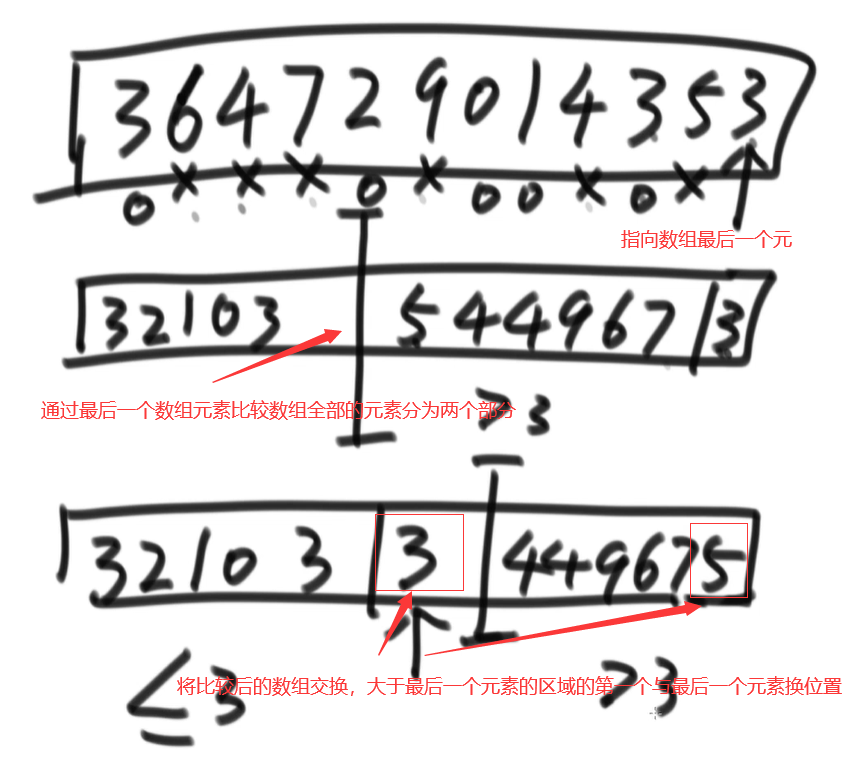 3 6 4 7 2 9 0 1 4 3 5 3
0 x x x 0 x 0 0 x 0 x
指向数组最后一个元
3 2 1 0 3 5 4 4 9 6 7 3
通过最后一个数组元素比较数组全部的元素分为两个部分
>3
3 2 1 0 3 3 4 4 9 6 7 5
将比较后的数组交换，大于最后一个元素的区域的第一个与最后一个元素换位置
≤3 >3